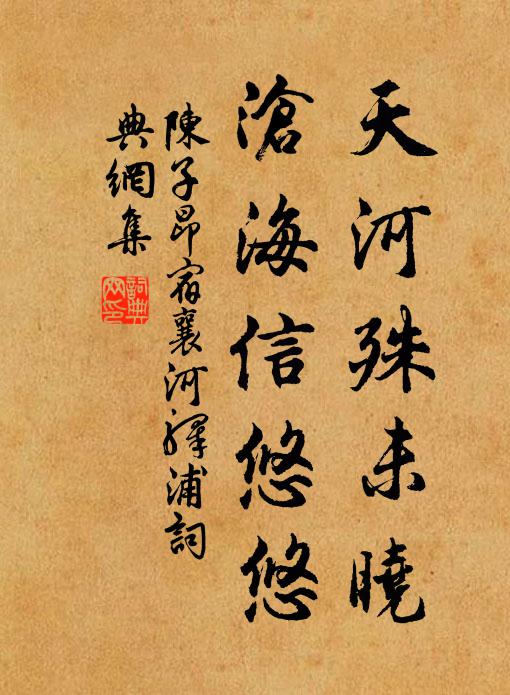 天河殊未曉
滄海信悠悠
陳子昂宿襄河驛浦詞
典網集
詞典
网印